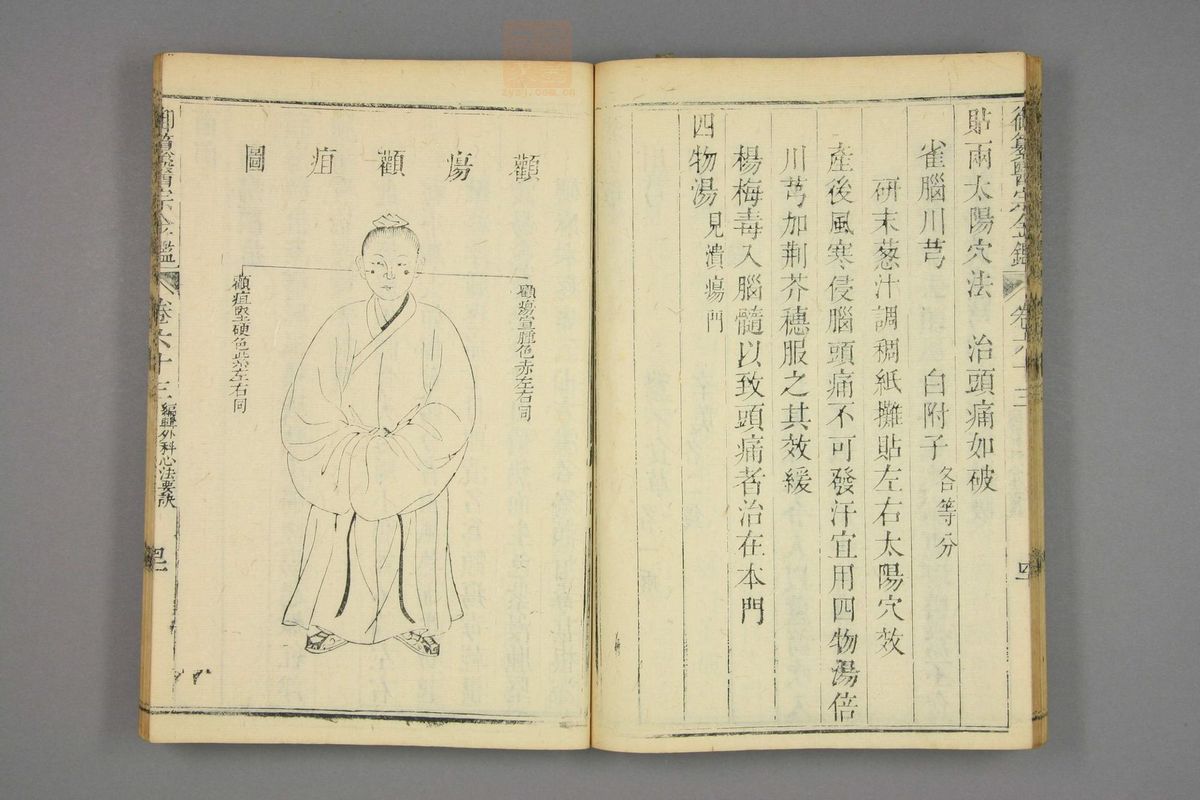 貼兩太陽穴法　治頭痛如破
雀腦川芎　白附子各等分
研末葱汁調稠紙攤貼左右太陽穴效
產後風寒侵腦頭痛不可發汗宜用四物湯倍
川芎加荆芥穗服之其效緩
楊梅毒入腦髓以致頭痛者治在本門
四物湯見潰瘍門
顴瘍顴疽圖
顴瘍宣腫色赤左右同
顴疽堅硬色紫左右同
御纂醫宗金鑑
卷六十三
編輯外科心法要訣
zysj.com.cn